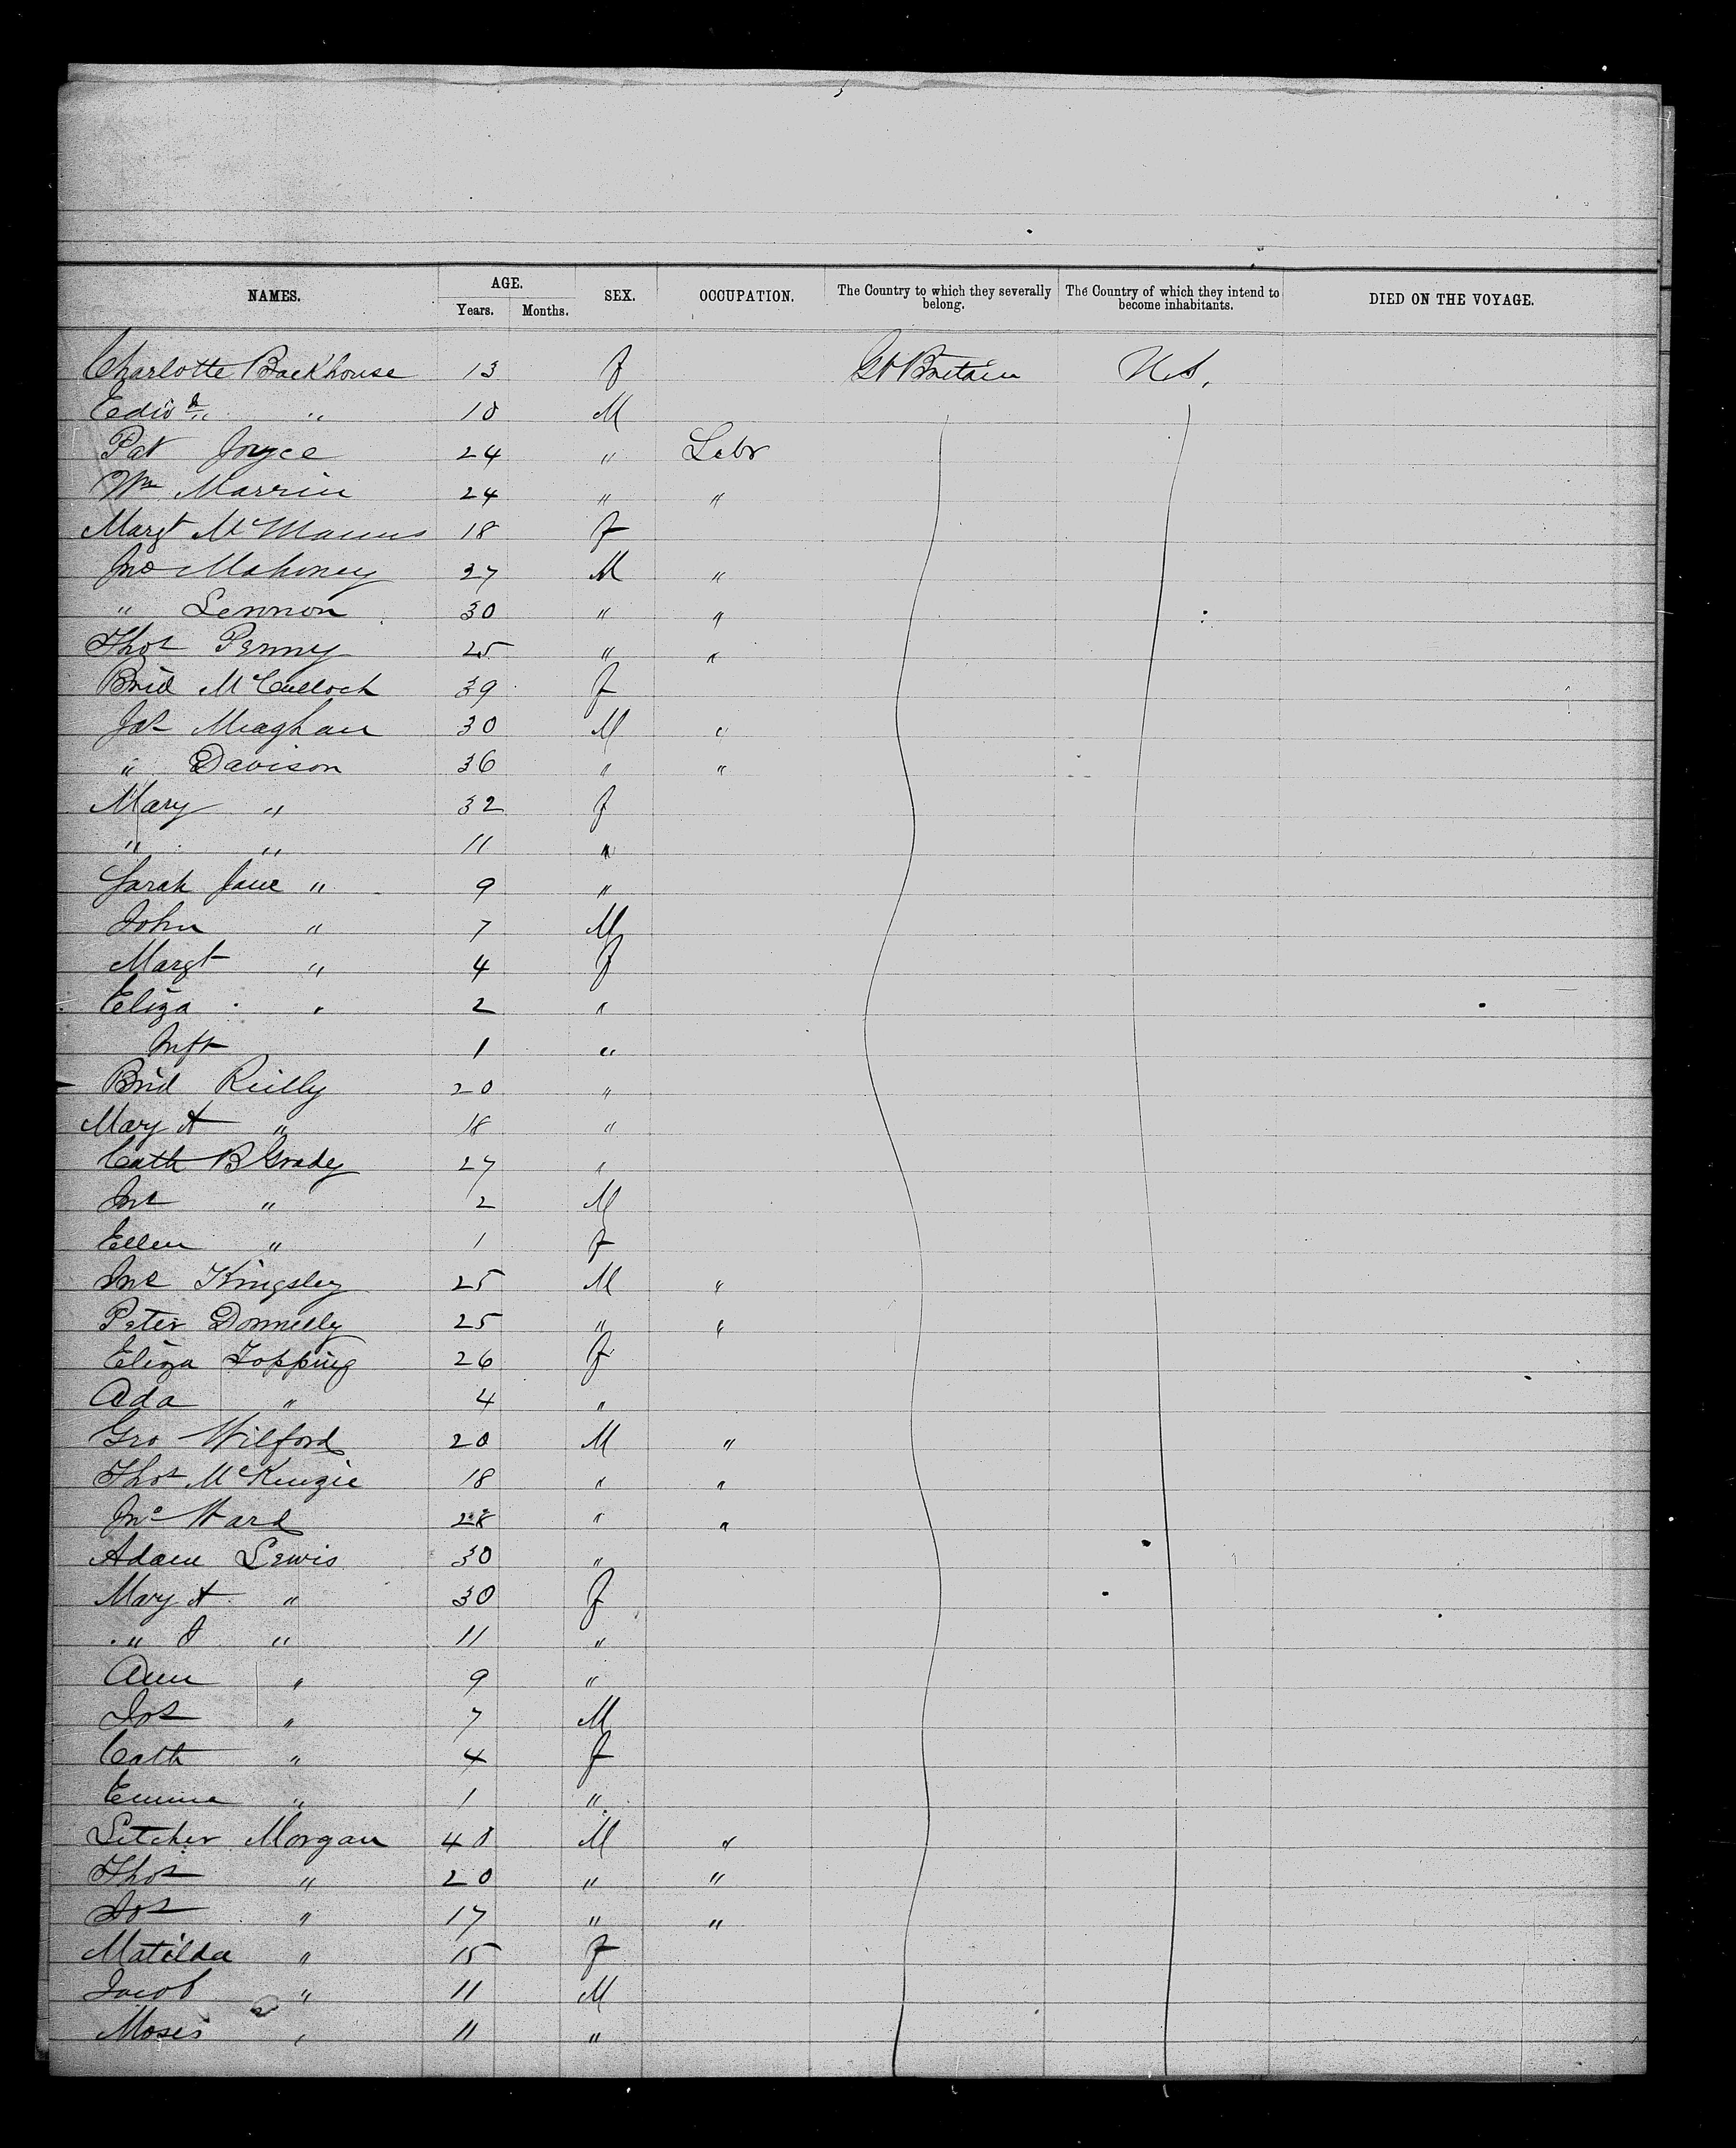 NAMES. AGE. Years. Months. SEX. OCCUPATION. The Country to which they severally belong. The Country of which they intend to become inhabitants. DIED ON THE VOYAGE.
Charlotte Backhouse 13 f Gt Britain U.S.
Edwd " 10 M
Pat Joyce 24 " Labr
Wm Marrin 24 " "
Margt McManus 18 f
Jno Mahoney 27 M "
" Lennon 30 " "
Thos Penny 25 " "
Brid McCulloch 39 f
Jas Meaghan 30 M "
" Davison 36 " "
Mary " 32 f
" " 11 "
Sarah Jane " 9 "
John " 7 M
Margt " 4 f
Eliza " 2 "
Inft 1 "
Brid Reilly 20 "
Mary A " 18 "
Cath B Grady 27 "
Jno " 2 M
Ellen " 1 f
Jno Kingsley 25 M "
Peter Donnelly 25 " "
Eliza Topping 26 f
Ada " 4 "
Geo Wilford 20 M "
Thos McKenzie 18 " "
Jno Ward 28 " "
Adam Lewis 30 "
Mary A " 30 f
" J " 11 "
Ann " 9 "
Jos " 7 M
Cath " 4 f
Emma " 1 "
Letcher Morgan 40 M "
Thos " 20 " "
Jos " 17 " "
Matilda " 15 f
Jacob " 11 M
Moses " 11 "